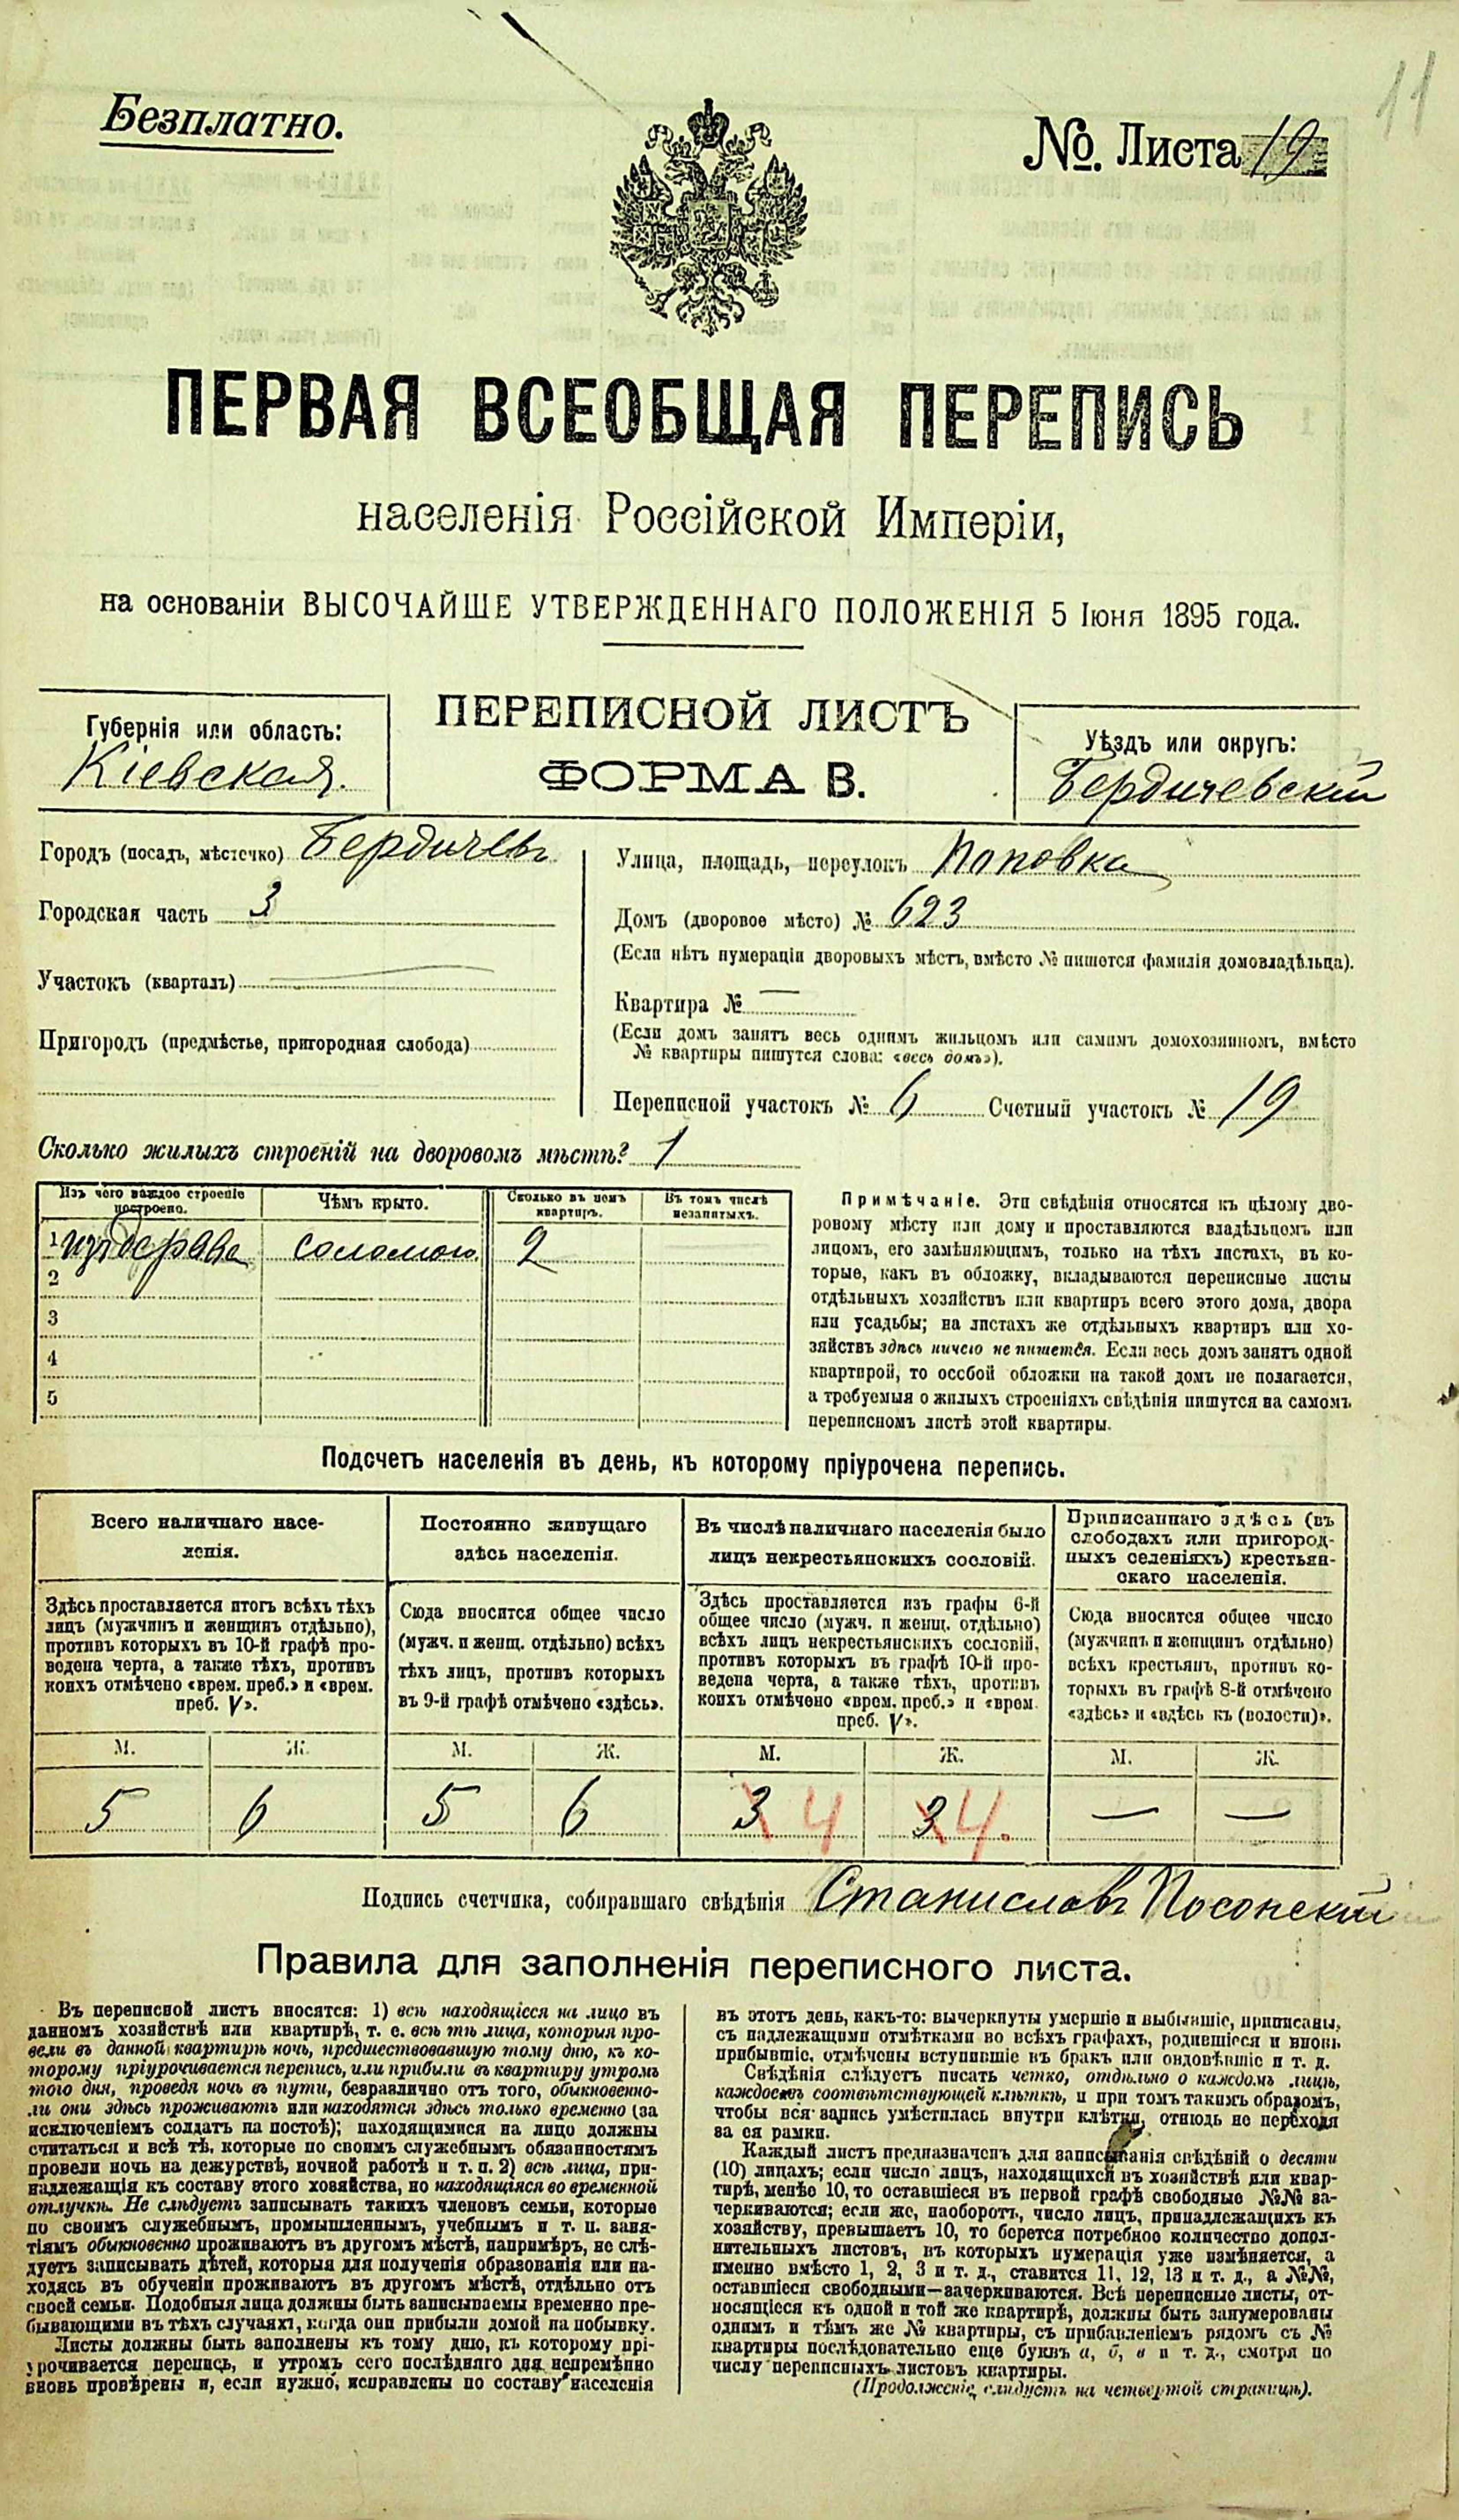 11
Безплатно.
№. Листа 19
ПЕРВАЯ ВСЕОБЩАЯ ПЕРЕПИСЬ
населенія Россійской Имперіи,
на основаніи ВЫСОЧАЙШЕ УТВЕРЖДЕННАГО ПОЛОЖЕНІЯ 5 Іюня 1895 года.
Губернія или область:
Кіевская.
ПЕРЕПИСНОЙ ЛИСТЪ
ФОРМА В.
Уѣздъ или округъ:
Бердичевскій
Городъ (посадъ, мѣстечко) Бердичевъ
Городская часть 3
Участокъ (кварталъ)
Пригородъ (предмѣстье, пригородная слобода)
Улица, площадь, переулокъ Поповка
Домъ (дворовое мѣсто) № 623
(Если нѣтъ нумераціи дворовыхъ мѣстъ, вмѣсто № пишется фамилія домовладѣльца).
Квартира № —
(Если домъ занятъ весь однимъ жильцомъ или самимъ домохозяиномъ, вмѣсто
№ квартиры пишутся слова: «весь домъ»).
Переписной участокъ № 6 Счетный участокъ № 19
Сколько жилыхъ строеній на дворовомъ мѣстѣ? 1
Изъ чего каждое строеніе
построено.
Чѣмъ крыто.
Сколько въ немъ
квартиръ.
Въ томъ числѣ
незанятыхъ.
1 изъ дерева соломою 2
2
3
4
5
Примѣчаніе. Эти свѣдѣнія относятся къ цѣлому дво-
ровому мѣсту или дому и проставляются владѣльцемъ или
лицомъ, его замѣняющимъ, только на тѣхъ листахъ, въ ко-
торые, какъ въ обложку, вкладываются переписные листы
отдѣльныхъ хозяйствъ или квартиръ всего этого дома, двора
или усадьбы; на листахъ же отдѣльныхъ квартиръ или хо-
зяйствъ здѣсь ничего не пишется. Если весь домъ занятъ одной
квартирой, то особой обложки на такой домъ не полагается,
а требуемыя о жилыхъ строеніяхъ свѣдѣнія пишутся на самомъ
переписномъ листѣ этой квартиры.
Подсчетъ населенія въ день, къ которому пріурочена перепись.
Всего наличнаго насе-
ленія.
Постоянно живущаго
здѣсь населенія.
Въ числѣ наличнаго населенія было
лицъ некрестьянскихъ сословій.
Приписаннаго здѣсь (въ
слободахъ или пригород-
ныхъ селеніяхъ) крестьян-
скаго населенія.
Здѣсь проставляется итогъ всѣхъ тѣхъ
лицъ (мужчинъ и женщинъ отдѣльно),
противъ которыхъ въ 10-й графѣ про-
ведена черта, а также тѣхъ, противъ
коихъ отмѣчено «врем. преб.» и «врем.
преб. V».
Сюда вносится общее число
(мужч. и женщ. отдѣльно) всѣхъ
тѣхъ лицъ, противъ которыхъ
въ 9-й графѣ отмѣчено «здѣсь».
Здѣсь проставляется изъ графы 6-й
общее число (мужч. и женщ. отдѣльно)
всѣхъ лицъ некрестьянскихъ сословій,
противъ которыхъ въ графѣ 10-й про-
ведена черта, а также тѣхъ, противъ
коихъ отмѣчено «врем. преб.» и «врем.
преб. V».
Сюда вносится общее число
(мужчинъ и женщинъ отдѣльно)
всѣхъ крестьянъ, противъ ко-
торыхъ въ графѣ 8-й отмѣчено
«здѣсь» и «здѣсь къ (волости)».
М. Ж. М. Ж. М. Ж. М. Ж.
5 6 5 6 3 4 3 4. — —
Подпись счетчика, собиравшаго свѣдѣнія Станиславъ Посонскій
Правила для заполненія переписного листа.
Въ переписной листъ вносятся: 1) всѣ находящіеся на лицо въ
данномъ хозяйствѣ или квартирѣ, т. е. всѣ тѣ лица, которыя про-
вели въ данной квартирѣ ночь, предшествовавшую тому дню, къ ко-
торому пріурочивается перепись, или прибыли въ квартиру утромъ
того дня, проведя ночь въ пути, безразлично отъ того, обыкновенно-
ли они здѣсь проживаютъ или находятся здѣсь только временно (за
исключеніемъ солдатъ на постоѣ); находящимися на лицо должны
считаться и всѣ тѣ, которые по своимъ служебнымъ обязанностямъ
провели ночь на дежурствѣ, ночной работѣ и т. п. 2) всѣ лица, при-
надлежащія къ составу этого хозяйства, но находящіяся во временной
отлучкѣ. Не слѣдуетъ записывать такихъ членовъ семьи, которые
по своимъ служебнымъ, промышленнымъ, учебнымъ и т. п. заня-
тіямъ обыкновенно проживаютъ въ другомъ мѣстѣ, напримѣръ, не слѣ-
дуетъ записывать дѣтей, которыя для полученія образованія или на-
ходясь въ обученіи проживаютъ въ другомъ мѣстѣ, отдѣльно отъ
своей семьи. Подобныя лица должны быть записываемы временно пре-
бывающими въ тѣхъ случаяхъ, когда они прибыли домой на побывку.
Листы должны быть заполнены къ тому дню, къ которому прі-
урочивается перепись, и утромъ сего послѣдняго дня непремѣнно
вновь провѣрены и, если нужно, исправлены по составу населенія
въ этотъ день, какъ-то: вычеркнуты умершіе и выбывшіе, приписаны,
съ надлежащими отмѣтками во всѣхъ графахъ, родившіеся и вновь
прибывшіе, отмѣчены вступившіе въ бракъ или овдовѣвшіе и т. д.
Свѣдѣнія слѣдуетъ писать четко, отдѣльно о каждомъ лицѣ,
каждое въ соотвѣтствующей клѣткѣ, и при томъ такимъ образомъ,
чтобы вся запись умѣстилась внутри клѣтки, отнюдь не переходя
за ея рамки.
Каждый листъ предназначенъ для записыванія свѣдѣній о десяти
(10) лицахъ; если число лицъ, находящихся въ хозяйствѣ или квар-
тирѣ, менѣе 10, то оставшіеся въ первой графѣ свободные №№ за-
черкиваются; если же, наоборотъ, число лицъ, принадлежащихъ къ
хозяйству, превышаетъ 10, то берется потребное количество допол-
нительныхъ листовъ, въ которыхъ нумерація уже измѣняется, а
именно вмѣсто 1, 2, 3 и т. д., ставится 11, 12, 13 и т. д., а №№,
оставшіеся свободными—зачеркиваются. Всѣ переписные листы, от-
носящіеся къ одной и той же квартирѣ, должны быть занумерованы
однимъ и тѣмъ же № квартиры, съ прибавленіемъ рядомъ съ №
квартиры послѣдовательно еще буквъ а, б, в и т. д., смотря по
числу переписныхъ листовъ квартиры.
(Продолженіе слѣдуетъ на четвертой страницѣ).